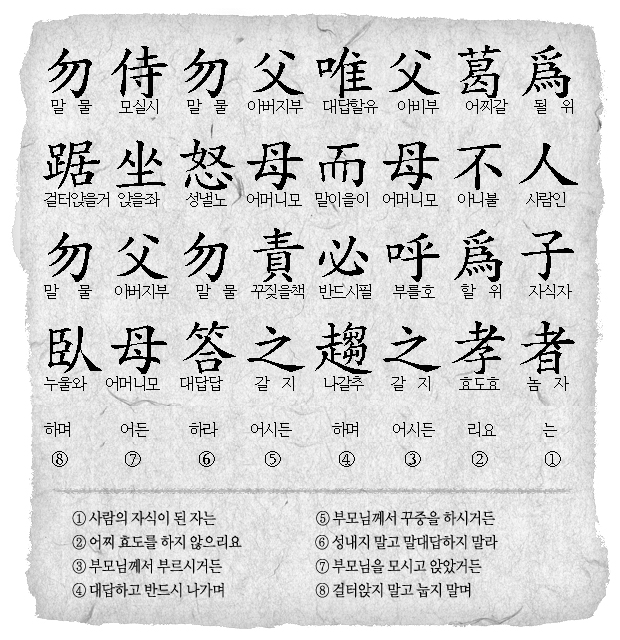 爲 될 위 人 사람인 子 자식자 者 놈 자 는 ①
葛 어찌갈 不 아니불 爲 할 위 孝 효도효 리요 ②
父 아비부 母 어머니모 呼 부를호 之 갈 지 어시든 ③
唯 대답할유 而 말이을이 必 반드시필 趨 나갈추 하며 ④
父 아버지부 母 어머니모 責 꾸짖을책 之 갈 지 어시든 ⑤
勿 말 물 怒 성낼노 勿 말 물 答 대답답 하라 ⑥
侍 모실시 坐 앉을좌 父 아버지부 母 어머니모 어든 ⑦
勿 말 물 踞 걸터앉을거 勿 말 물 臥 누울와 하며 ⑧
① 사람의 자식이 된 자는
② 어찌 효도를 하지 않으리요
③ 부모님께서 부르시거든
④ 대답하고 반드시 나가며
⑤ 부모님께서 꾸중을 하시거든
⑥ 성내지 말고 말대답하지 말라
⑦ 부모님을 모시고 앉았거든
⑧ 걸터앉지 말고 눕지 말며